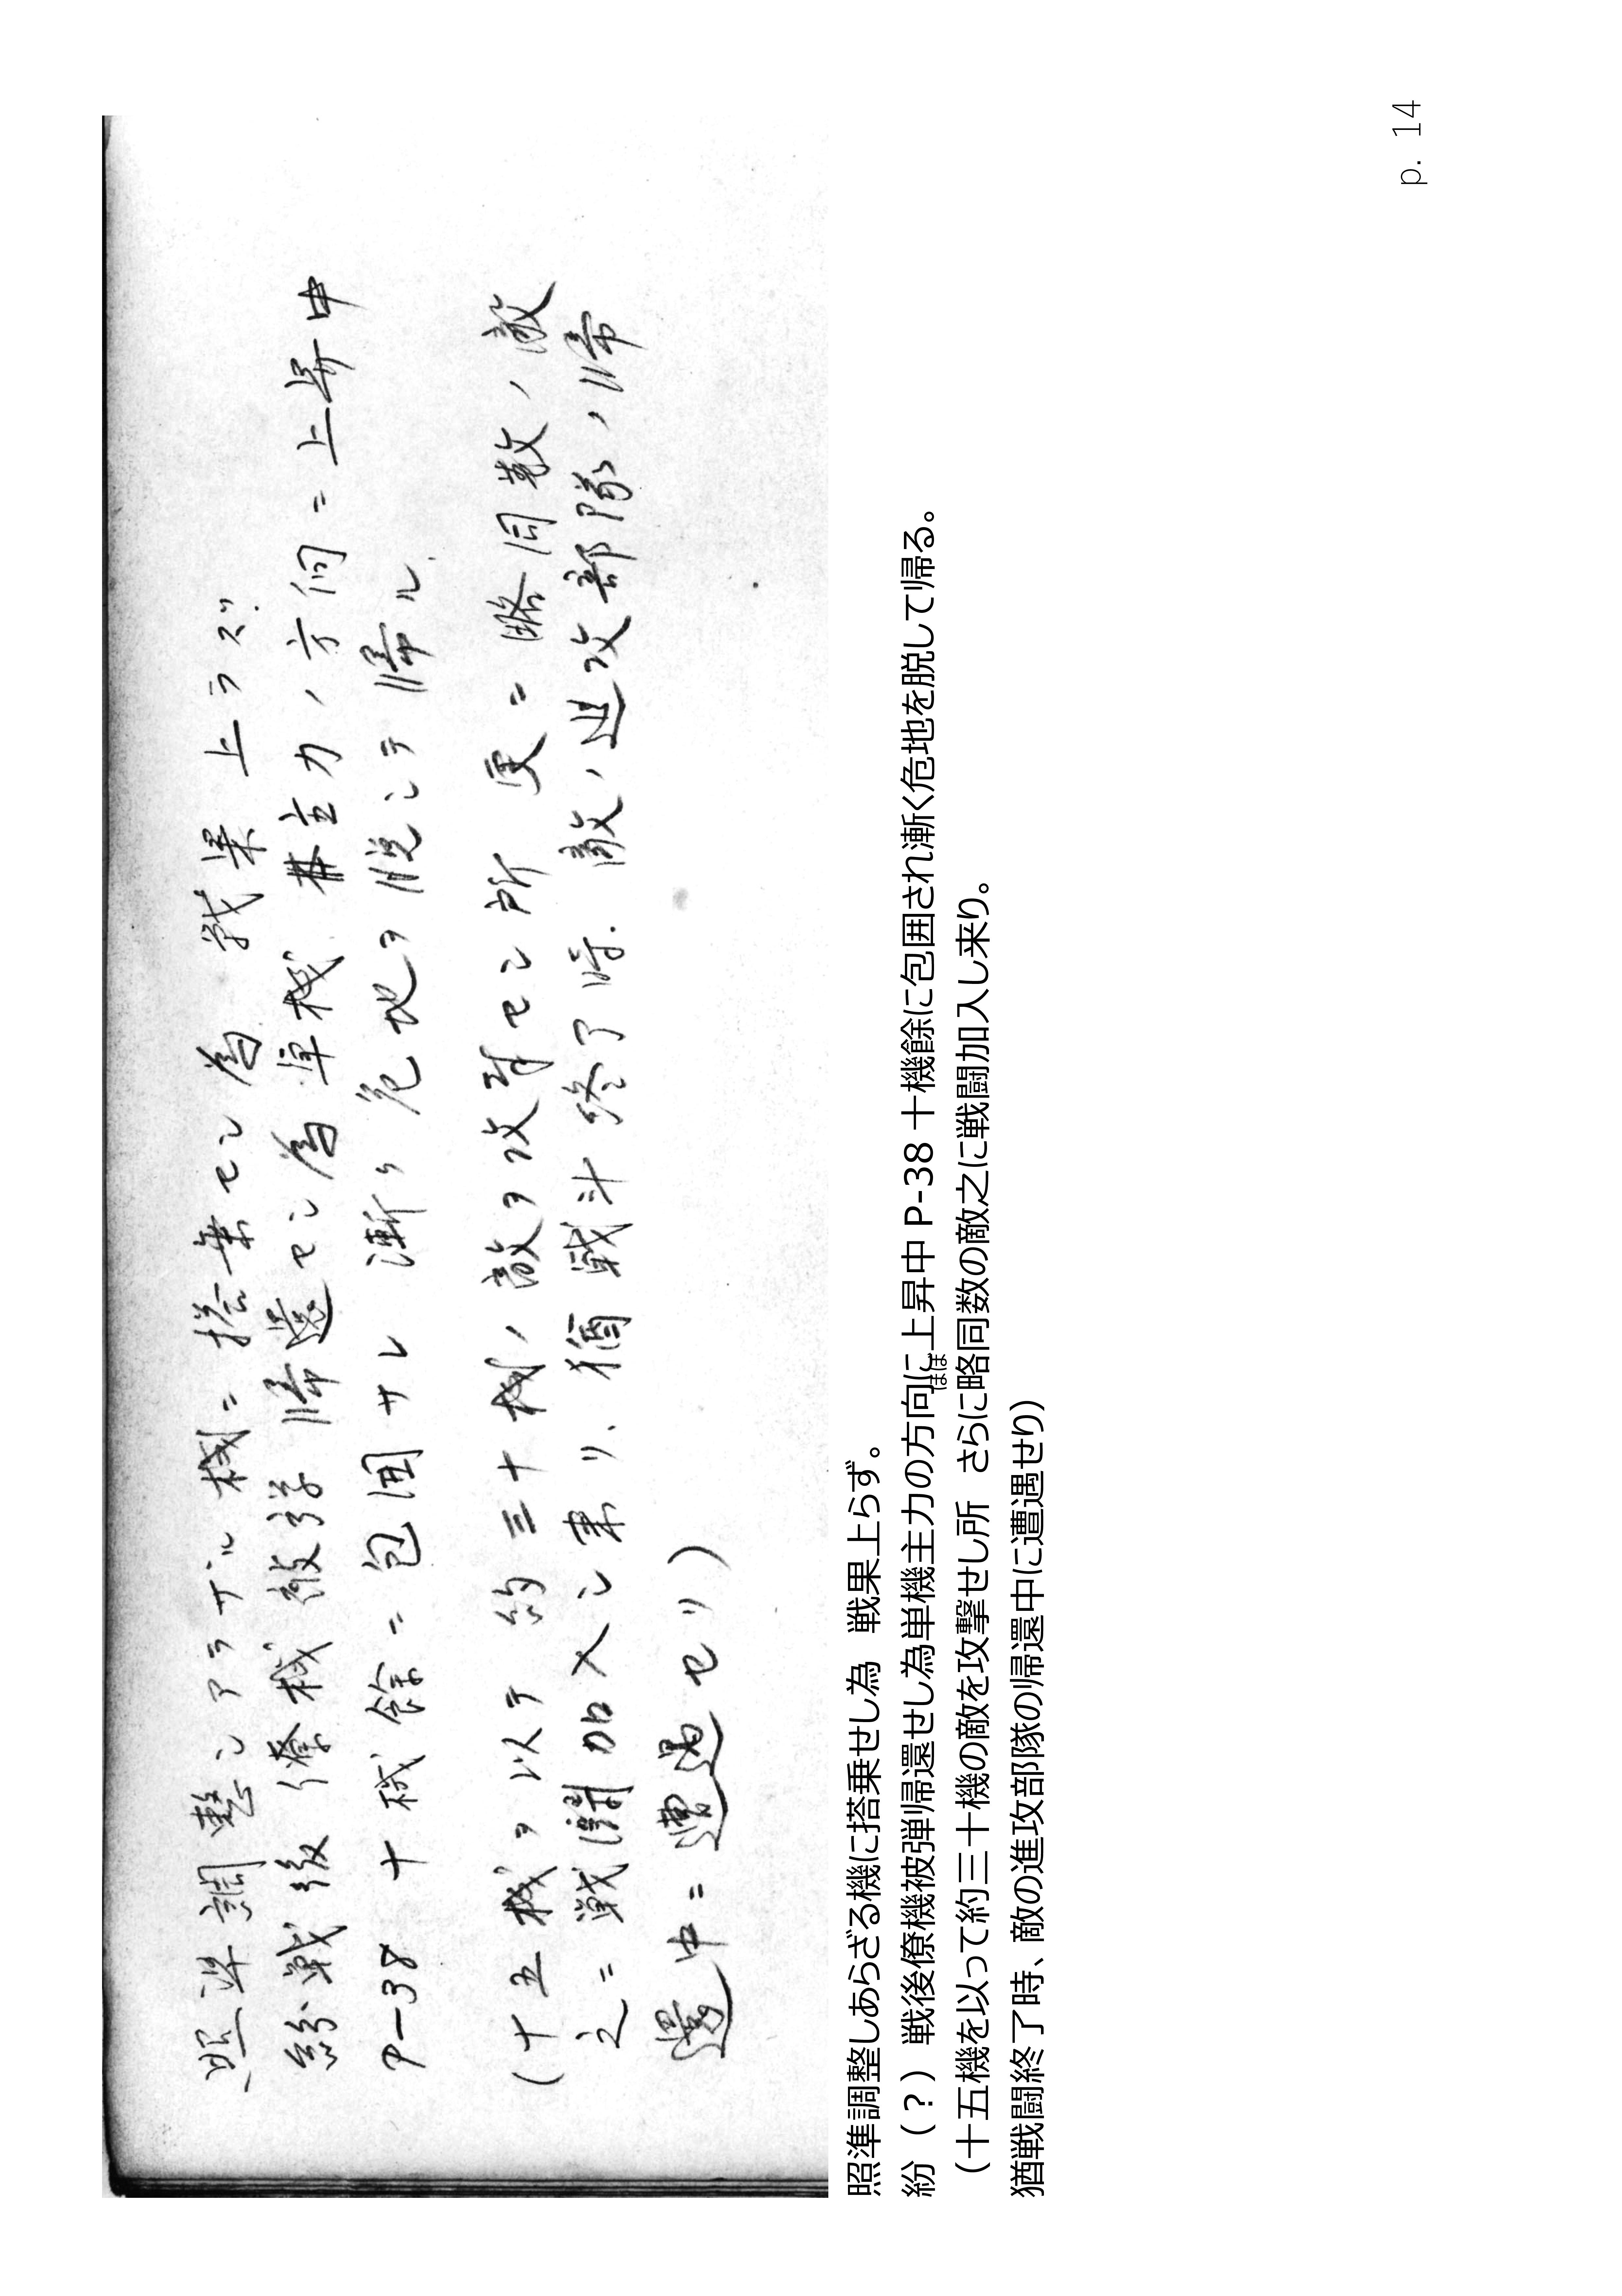 照準調整シアラザル機ニ搭乗セシ為　戦果上ラズ。
紛戦後僚機被弾帰還セシ為単機主力ノ方向ニ上昇中
P-38十機餘ニ包囲サレ漸ク危地ヲ脱シテ帰ル.
(十五機ヲ以テ約三十機ノ敵ヲ攻撃セシ所　更ニ略同数ノ敵
之ニ戦闘加入シ来リ、猶戦斗終了時.　敵ノ進攻部隊ノ帰
還中ニ遭遇セリ)
照準調整しあらざる機に搭乗せし為　戦果上らず。
紛（?）戦後僚機被弾帰還せし為単機主力の方向に上昇中 P-38 十機餘に包囲され漸く危地を脱して帰る。
ほぼ
（十五機を以って約三十機の敵を攻撃せし所　さらに略同数の敵之に戦闘加入し来り。
猶戦闘終了時、敵の進攻部隊の帰還中に遭遇せり)
p. 14